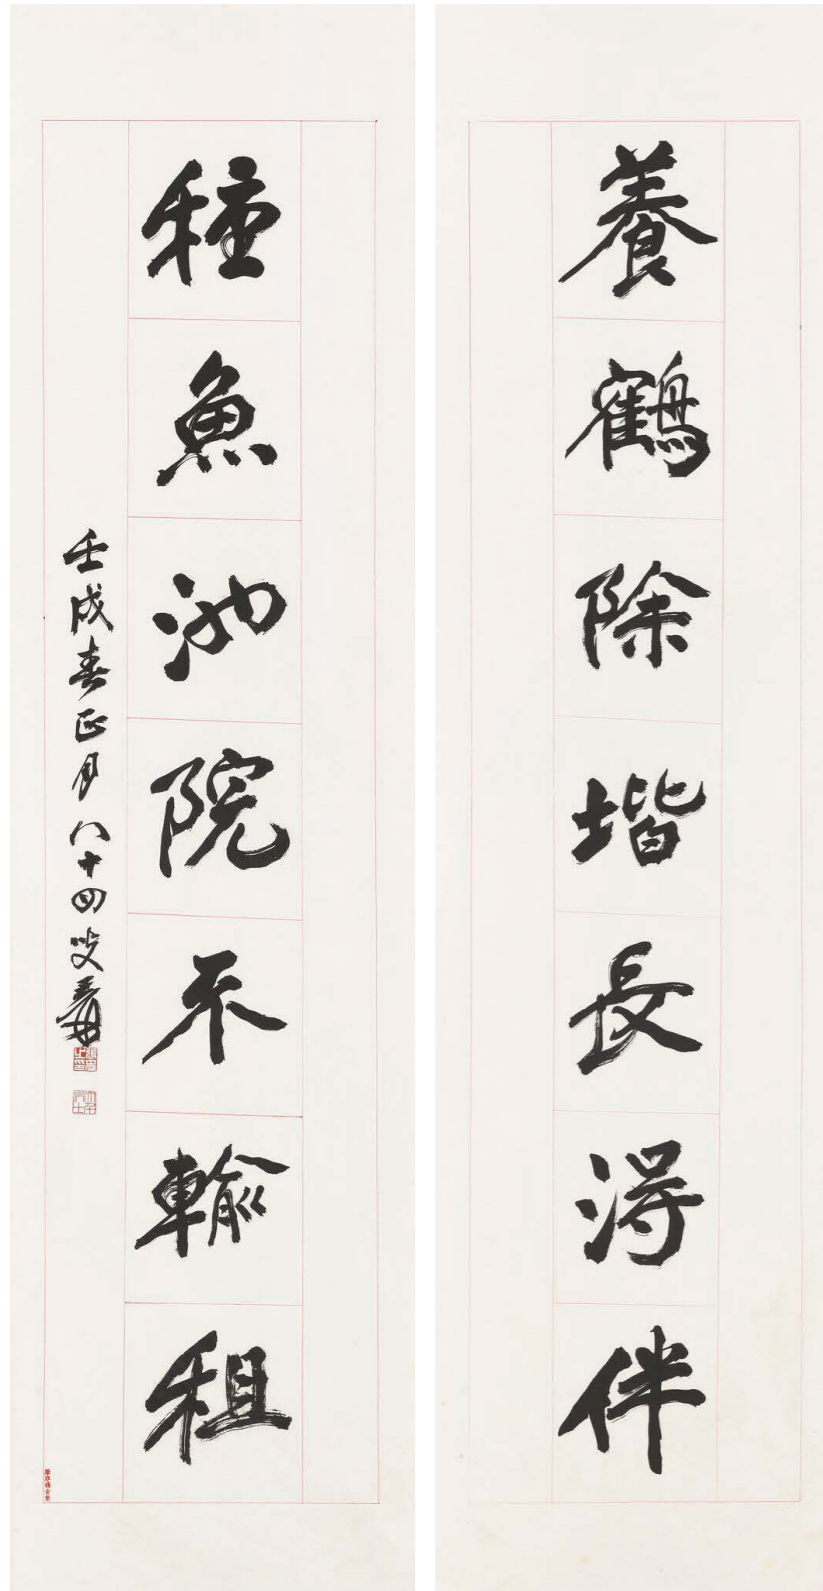 養鶴除堦長得伴
種魚池院不輸租
壬戌春正月八十四叟爰